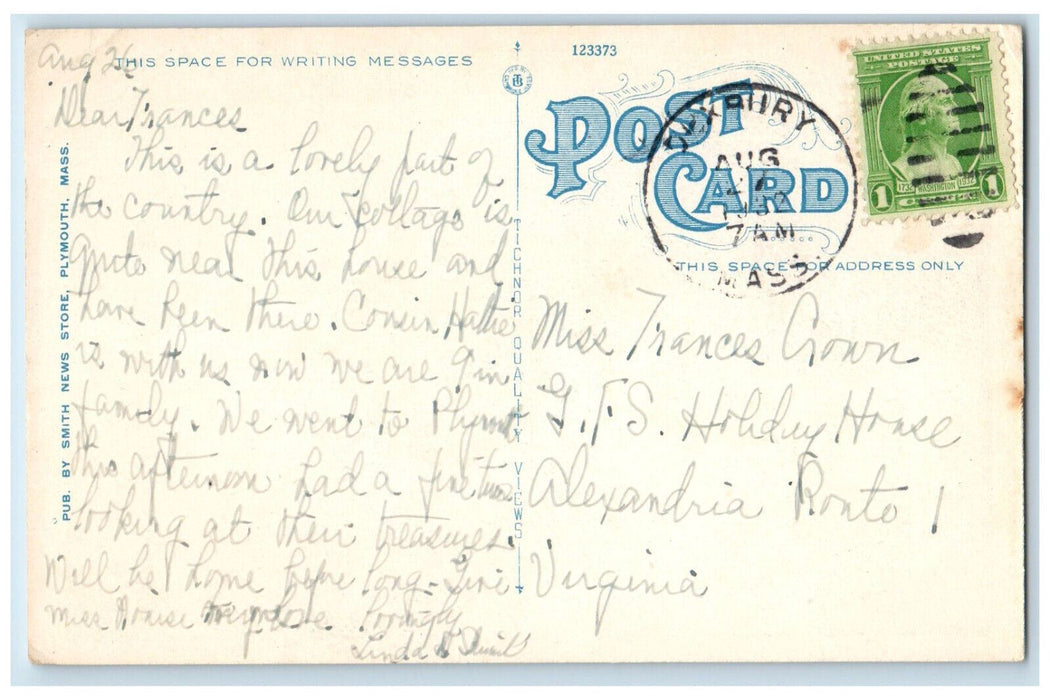 Aug 26
THIS SPACE FOR WRITING MESSAGES
Dear Frances
This is a lovely part of
the country. Our cottage is
quite near this house and
have been there. Cousin Hattie
is with us now we are 9 in
family. We went to Plym
this afternoon had a fine time
looking at their treasures.
Will be home before long. Give
Miss my love. Lovingly
Linda
PUB. BY SMITH NEWS STORE, PLYMOUTH, MASS.
TICHNOR QUALITY VIEWS
123373
POST CARD
DUXBURY
AUG
7 AM
MASS.
UNITED STATES
POSTAGE
1732 WASHINGTON 1932
1 CENT 1
THIS SPACE FOR ADDRESS ONLY
Miss Frances Crown
G.F.S. Holiday House
Alexandria Route 1
Virginia